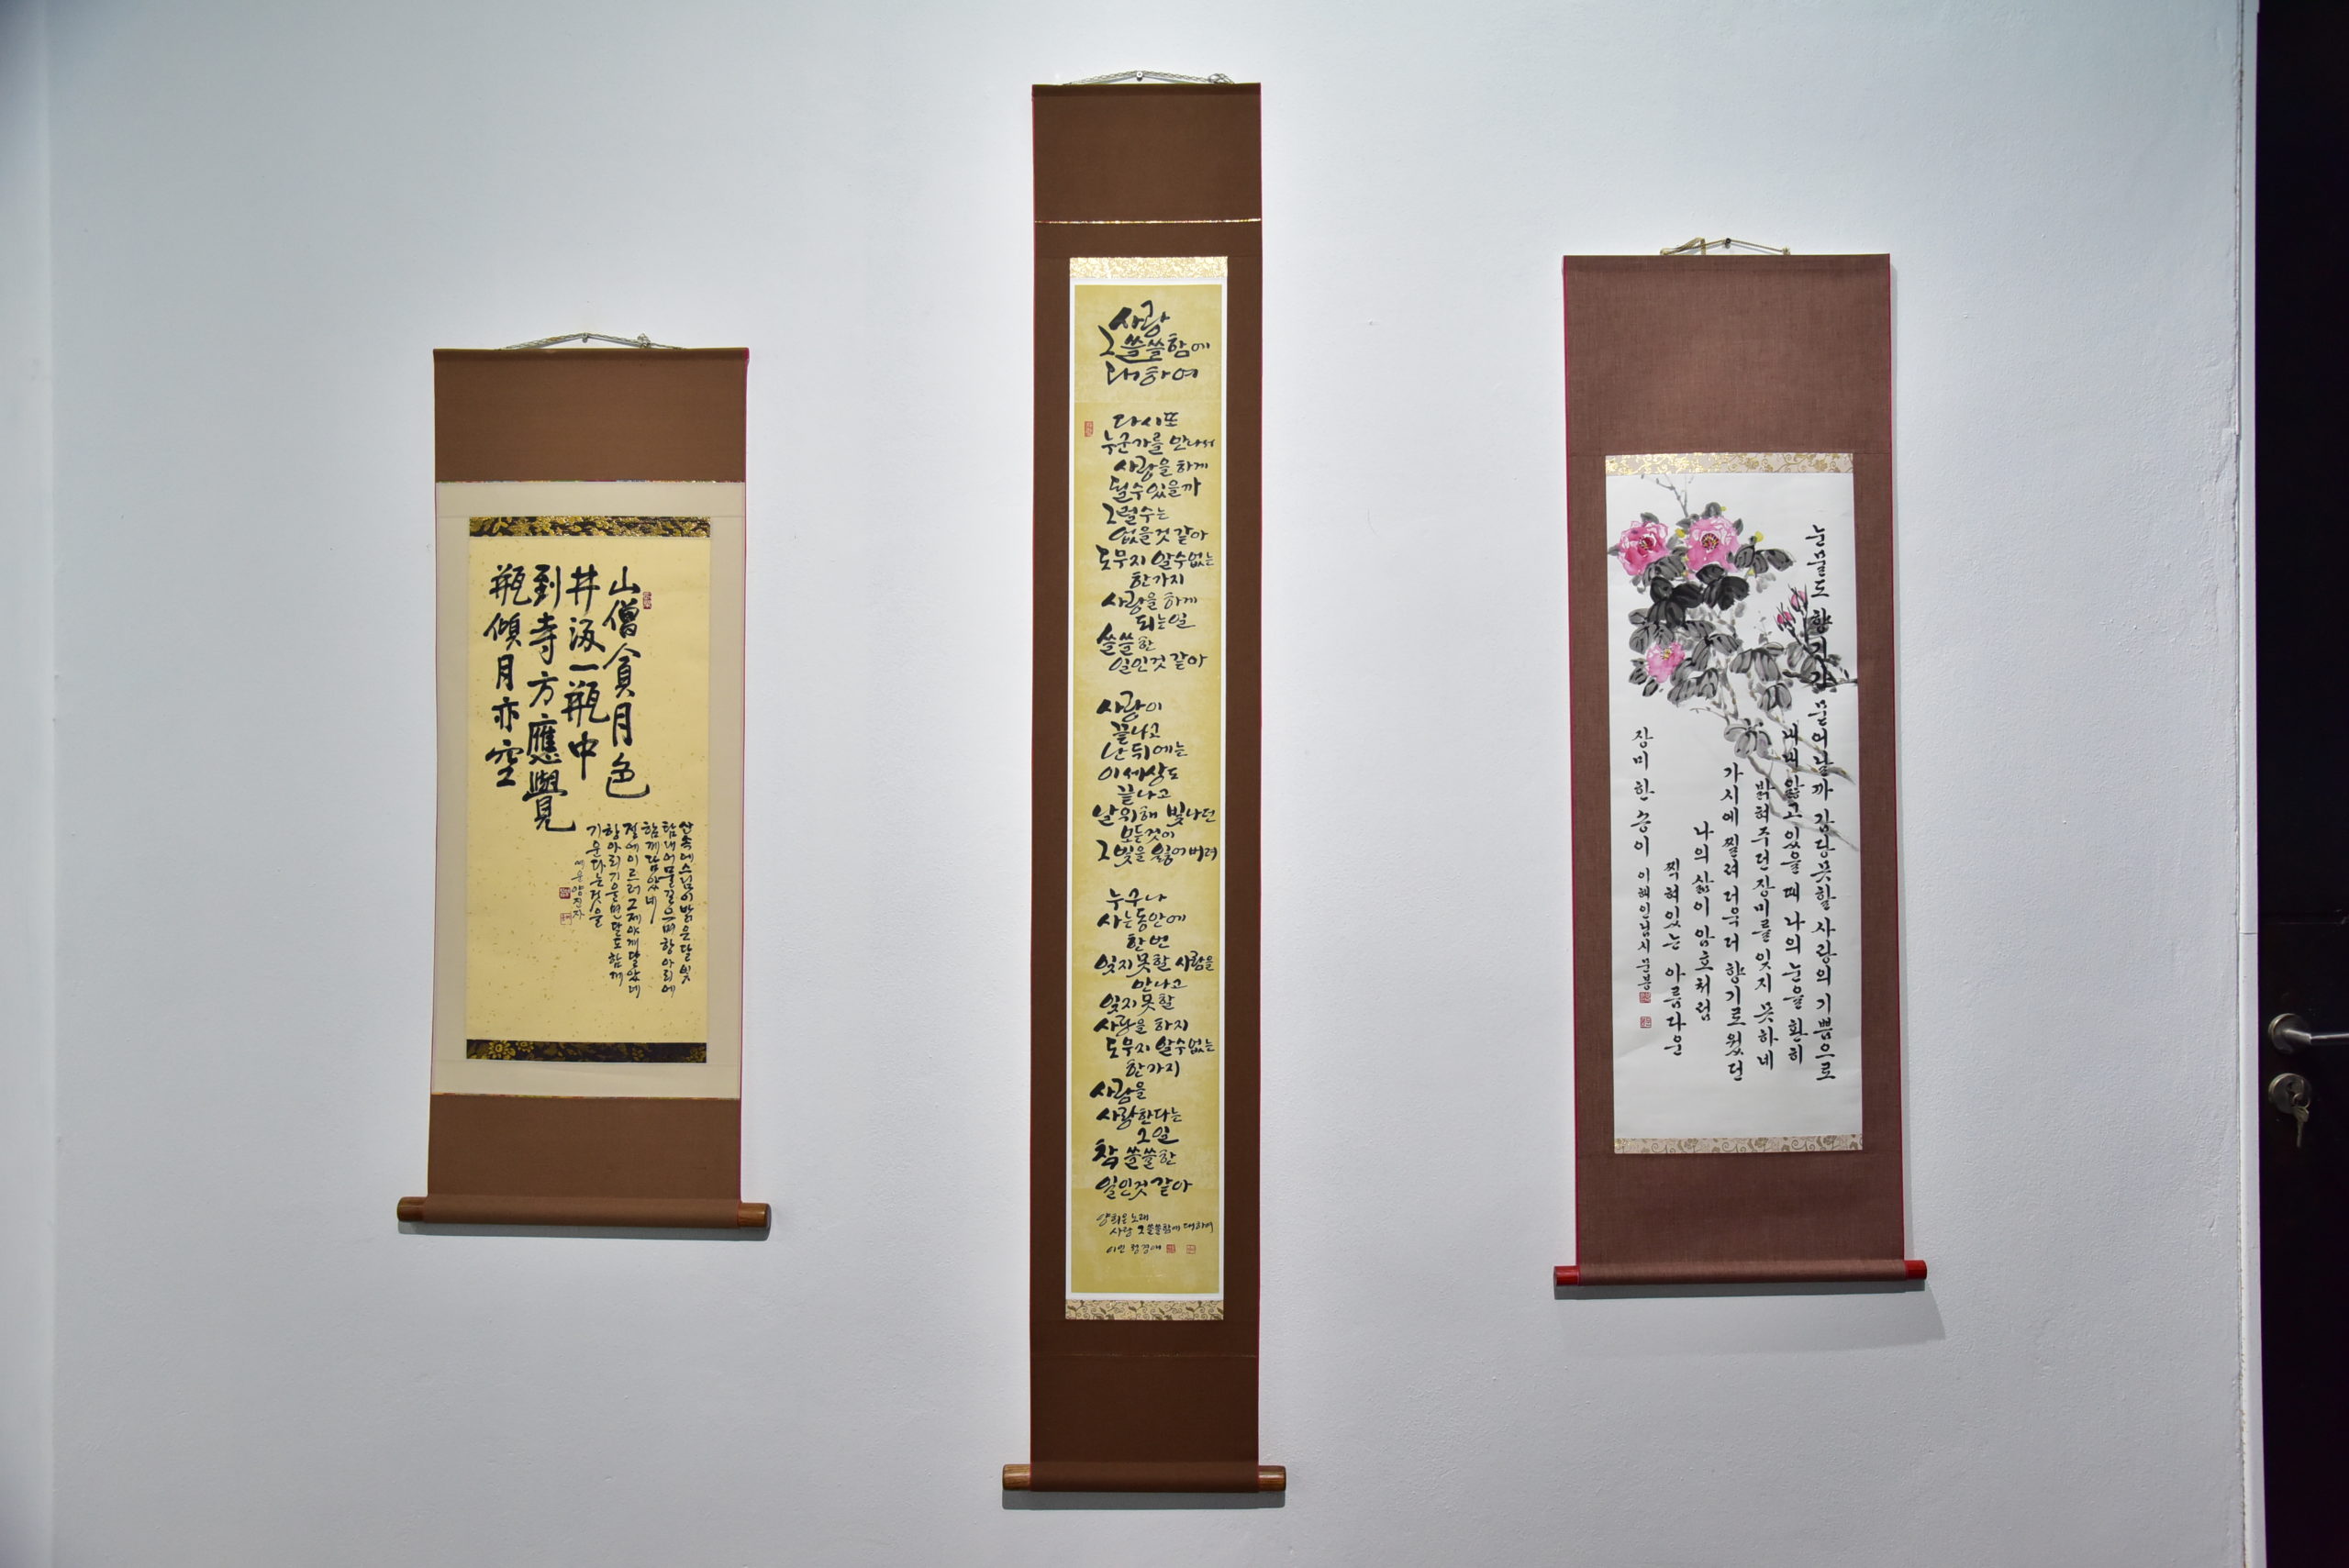 山僧貪月色
井汲一甁中
到寺方應覺
甁傾月亦空
산속에 스님이 밝은 달빛
탐내어 물길으며 항아리에
함께 담았네
절에 이르러 그제야 깨달았네
항아리 기울면 달도 함께
기운다는 것을
사랑
그 쓸쓸함에
대하여
다시 또
누군가를 만나서
사랑을 하게
될 수 있을까
그럴 수는
없을 것 같아
도무지 알 수 없는
한 가지
사랑을 하게
되는 일
쓸쓸한
일인 것 같아
사랑이
끝나고
난 뒤에는
이 세상도
끝나고
날 위해 빛나던
모든 것이
그 빛을 잃어버려
누구나
사는 동안에
한 번
잊지 못할 사람을
만나고
잊지 못할
사랑을 하지
도무지 알 수 없는
한 가지
사람을
사랑한다는
그 일
참 쓸쓸한
일인 것 같아
양희은 노래
사랑 그 쓸쓸함에 대하여
눈물도 향기가 묻어날까 감당못할 사랑의 기쁨으로
내내 앓고 있을 때 나의 눈을 환히
밝혀주던 장미를 잊지 못하네
가시에 찔려 더욱 더 향기로웠던
나의 삶이 암호처럼
찍혀있는 아름다운
장미 한 송이 이해인님 시